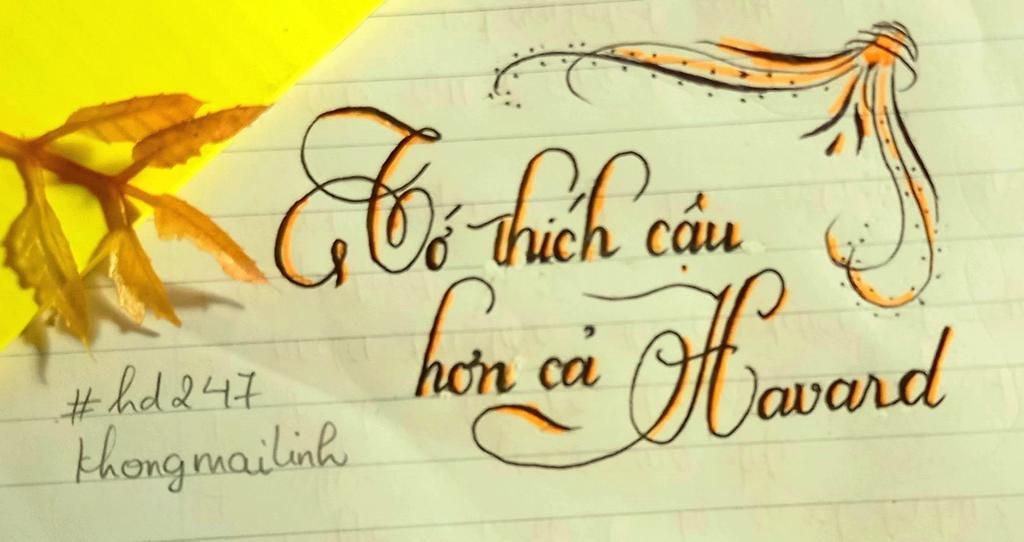 Tớ thích cậu
hơn cả Havard
#hd247
khongmailinh